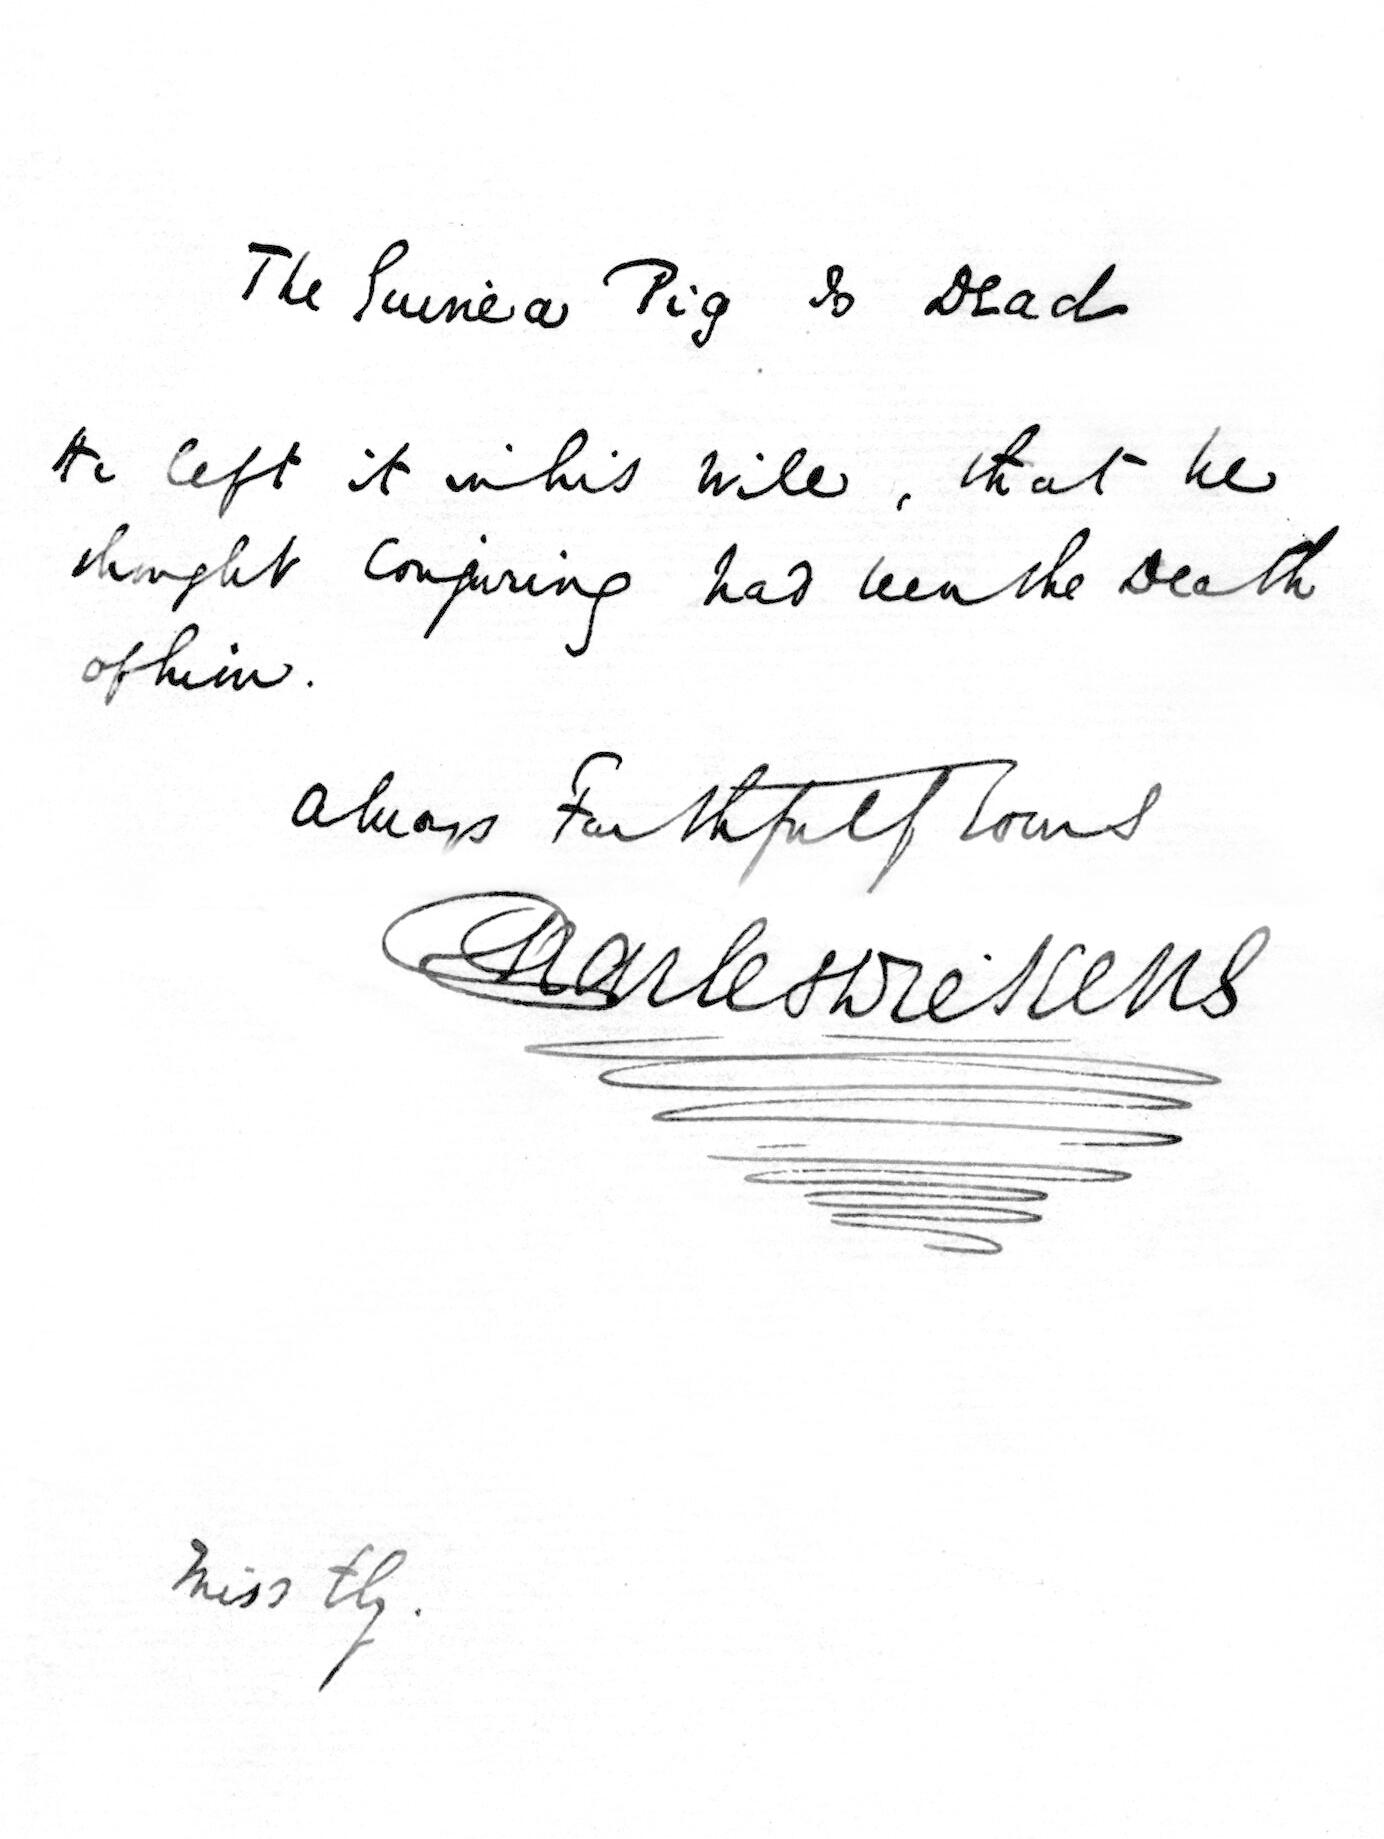 The Guinea Pig Is Dead
He left it in his Will, that he
thought Conjuring had been the Death
of him.
Always Faithfully Yours
Charles Dickens
Miss Ely.